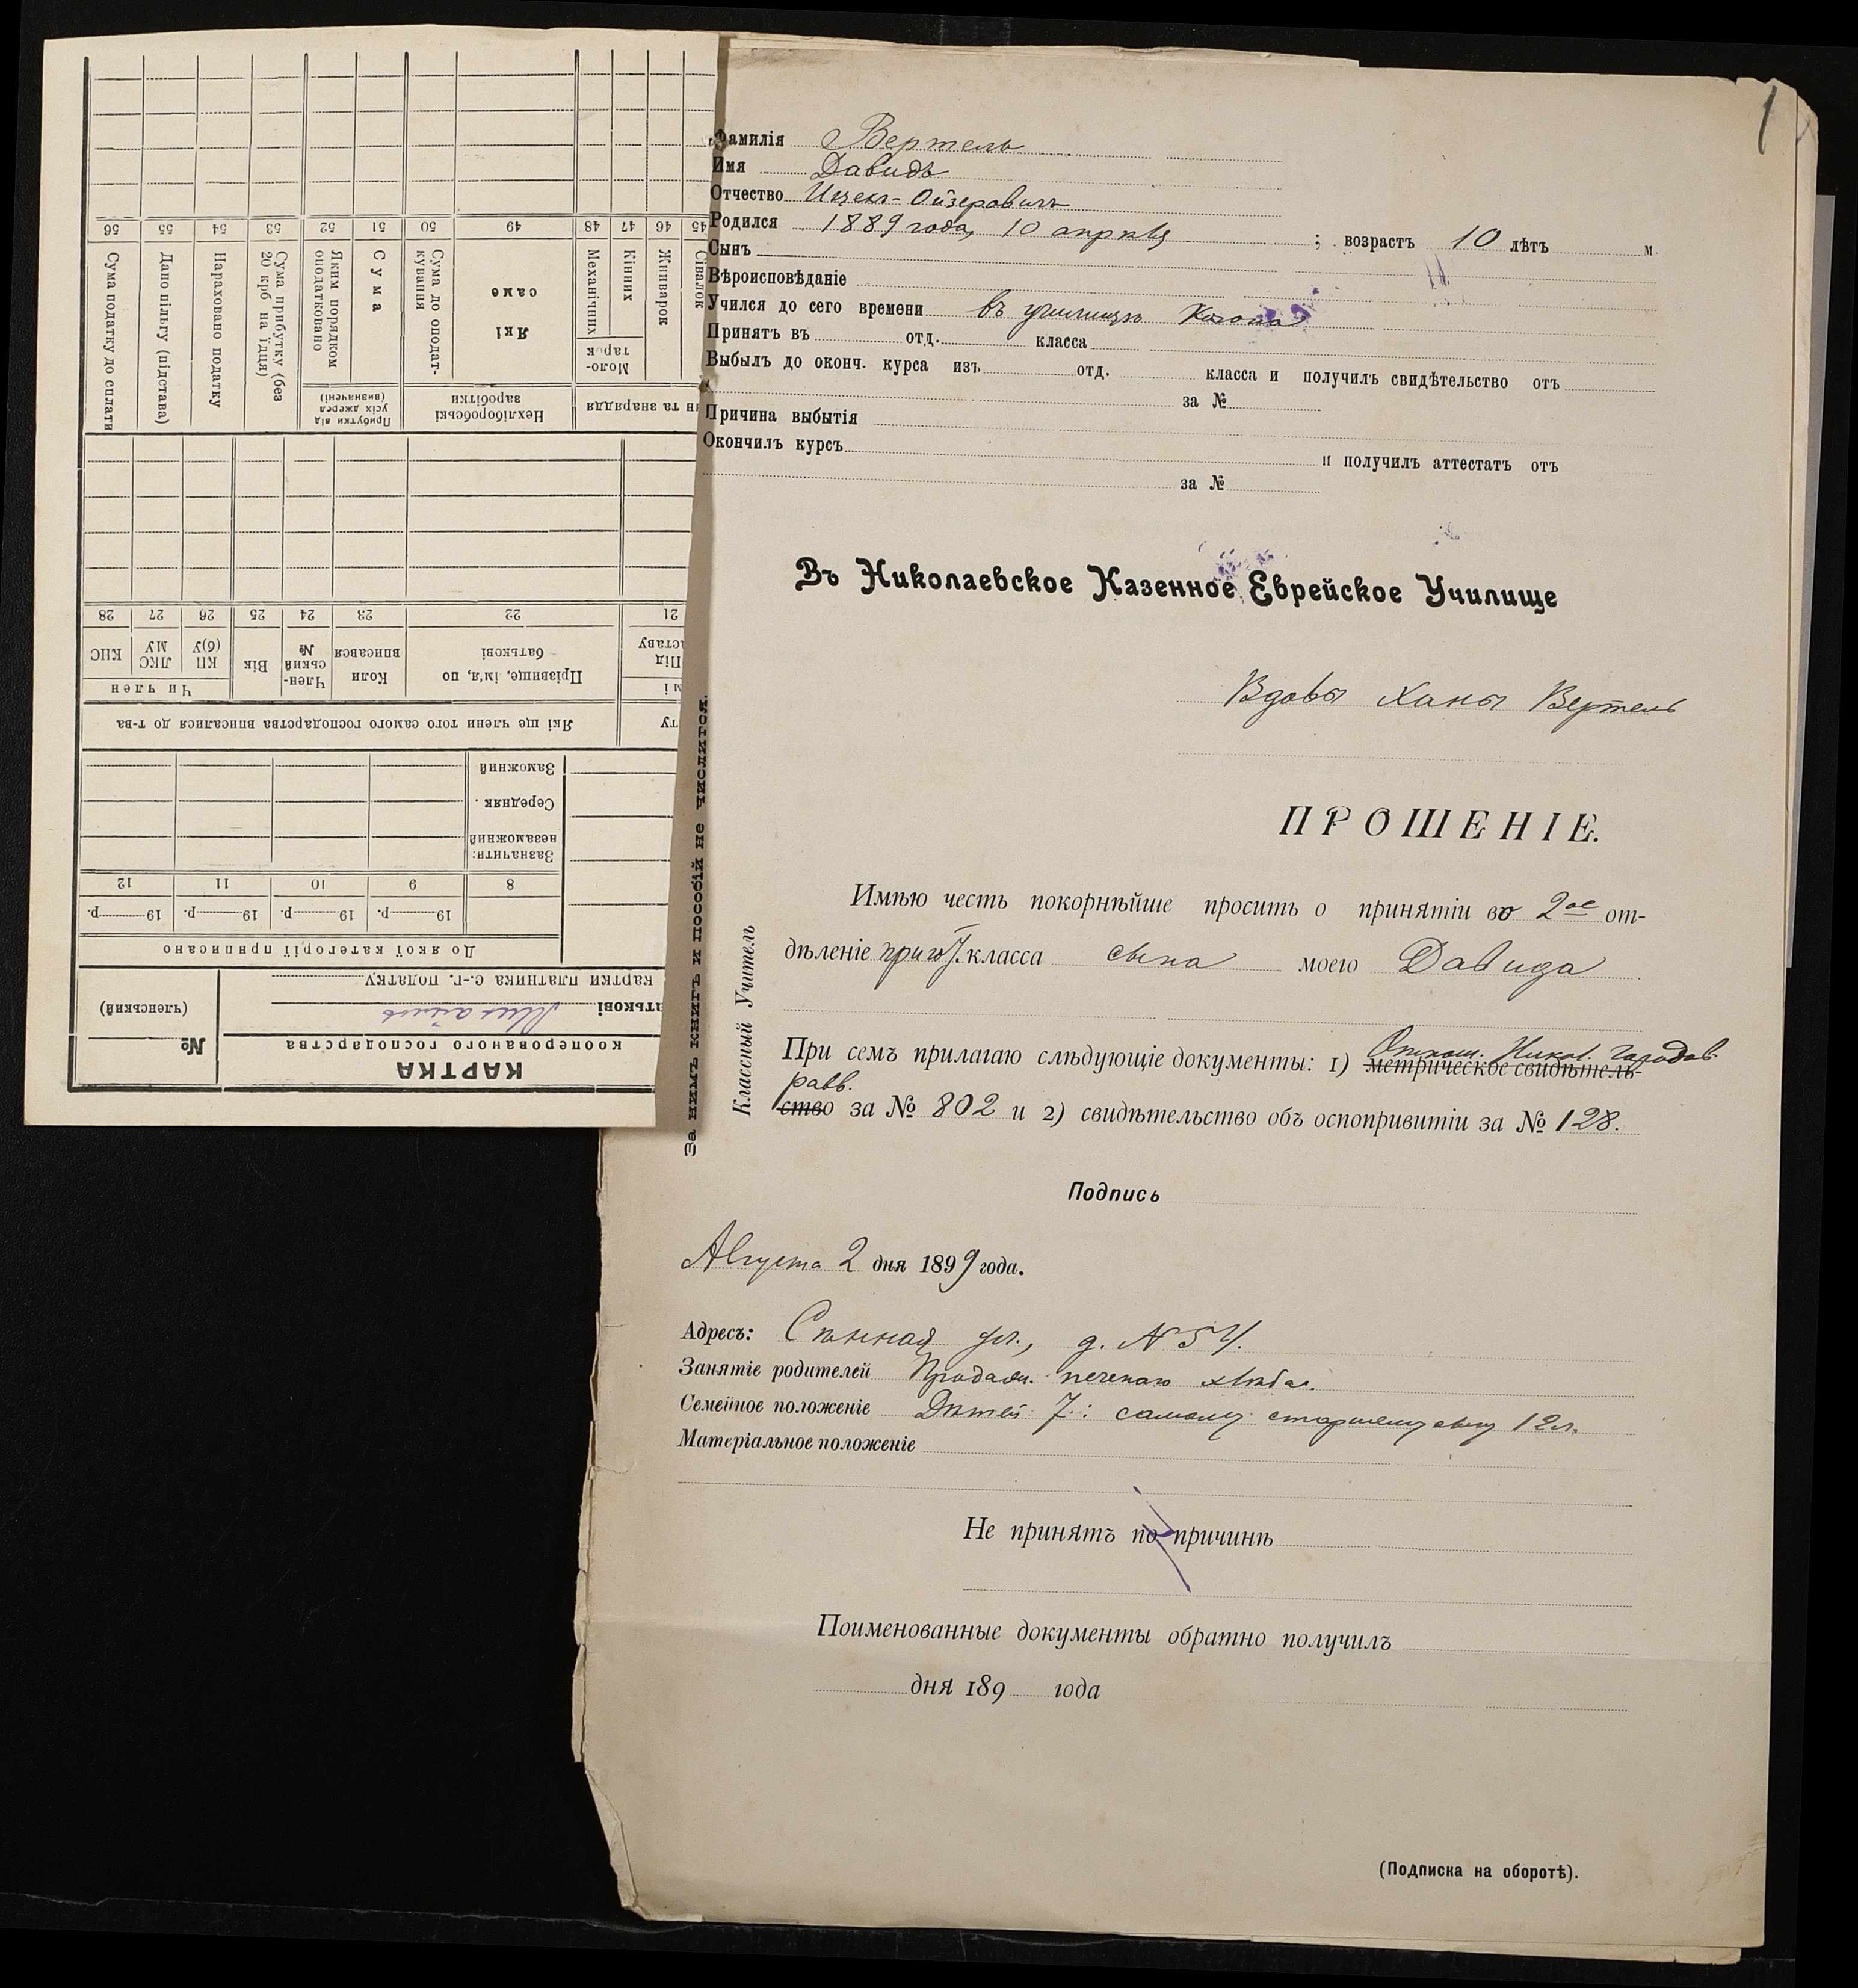 1
Фамилія Вертель
Имя Давидъ
Отчество Ицекъ-Ойзеровичъ
Родился 1889 года, 10 апрѣля ; возрастъ 10 лѣтъ м.
Сынъ
Вѣроисповѣданіе
Учился до сего времени въ училищѣ Когона
Принятъ въ отд. класса
Выбылъ до оконч. курса изъ отд. класса и получилъ свидѣтельство отъ
за №
Причина выбытія
Окончилъ курсъ и получилъ аттестатъ отъ
за №
Въ Николаевское Казенное Еврейское Училище
Вдовы Ханы Вертель
ПРОШЕНІЕ.
Имѣю честь покорнѣйше просить о принятіи во 2ое от-
дѣленіе пригот. класса сына моего Давида
Отнош. Никол. городов.
При семъ прилагаю слѣдующіе документы: 1) метрическое свидѣтель-
равв.
ство за № 802 и 2) свидѣтельство объ оспопривитіи за № 128.
Подпись
Августа 2 дня 1899 года.
Адресъ: Сѣнная ул., д. № 54.
Занятіе родителей Продаж. печенаго хлѣба.
Семейное положеніе Дѣтей 7: самому старшему сыну 12 л.
Матеріальное положеніе
Не принятъ по причинѣ
Поименованные документы обратно получилъ
дня 189 года
(Подписка на оборотѣ).
Классный Учитель
За нимъ книгъ и пособій не числится.
КАРТКА
кооперованого господарства
№
(членський)
тькові
картки платника с.-г. податку
До якої категорії приписано
19 р. 19 р. 19 р. 19 р.
8 9 10 11 12
Зазначити:
незаможний
Середняк
Заможний
Які ще члени того самого господарства вписалися до т-ва
Чи член
Прізвище, ім'я, по батькові
Коли вписався
Член-ський №
Вік
КП(б)У
ЛКСМУ
КНС
21 22 23 24 25 26 27 28
ня та знаряддя
Нехліборобські заробітки
Прибутки від усіх джерел (визначені)
Сівалок
Жниварок
Кінних
Механічних
Моло-тарок
Які саме
Сума до оподат-кування
Сума
Яким порядком оподатковано
Сума прибутку (без 20 крб на їдця)
Нараховано податку
Дано пільгу (підстава)
Сума податку до сплати
45 46 47 48 49 50 51 52 53 54 55 56